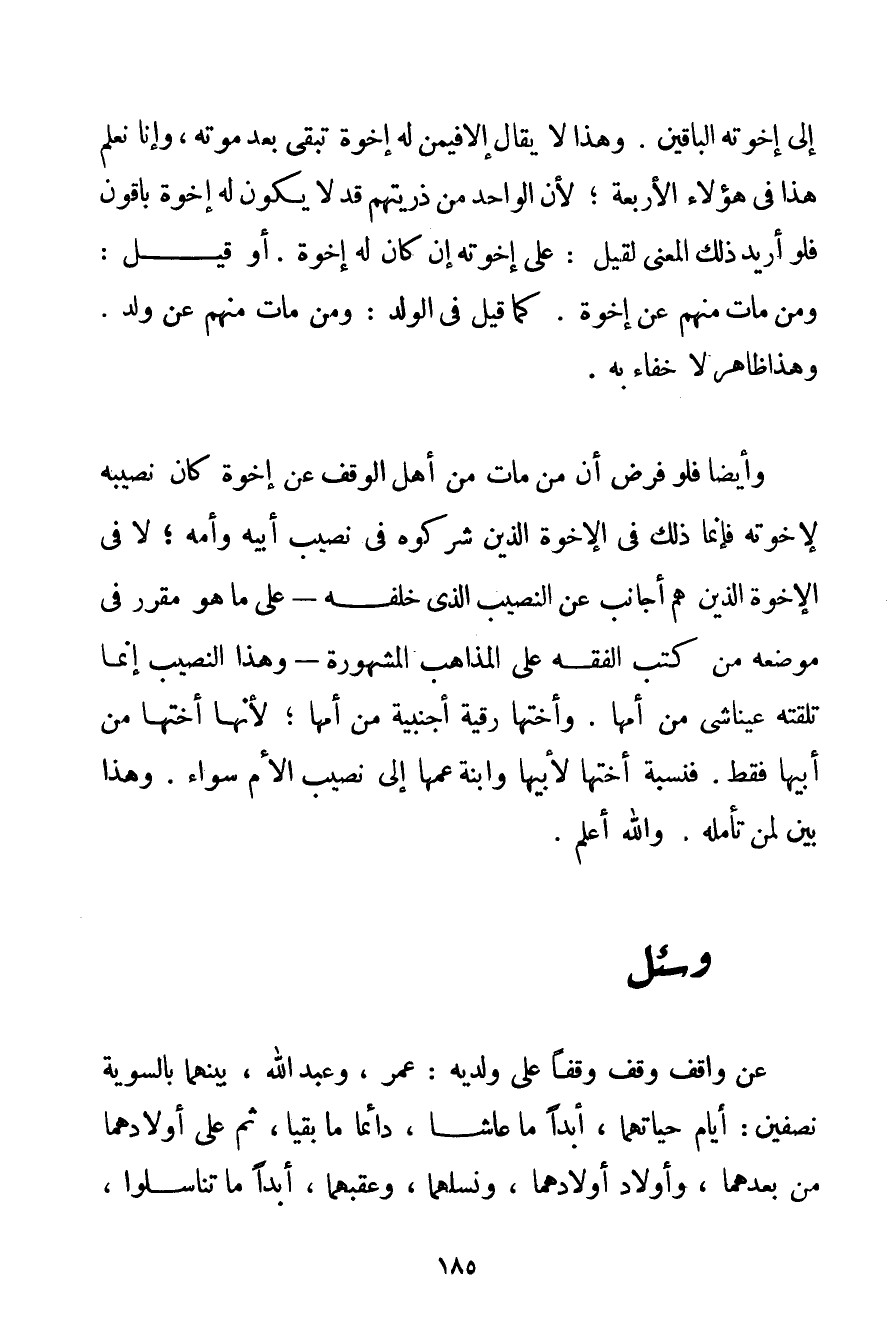 إلى إخوته الباقين . وهذا لا يقال إلا فيمن له إخوة تبقى بعد موته ، وإنا نعلم
هذا فى هؤلاء الأربعة ؛ لأن الواحد من ذريتهم قد لا يكون له إخوة باقون
فلو أريد ذلك المعنى لقيل : على إخوته إن كان له إخوة . أو قيـــــل :
ومن مات منهم عن إخوة . كما قيل فى الولد : ومن مات منهم عن ولد .
وهذا ظاهر لا خفاء به .
وأيضا فلو فرض أن من مات من أهل الوقف عن إخوة كان نصيبه
لإخوته فإنما ذلك فى الإخوة الذين شركوه فى نصيب أبيه وأمه ؛ لا فى
الإخوة الذين هم أجانب عن النصيب الذى خلفـــه – على ما هو مقرر فى
موضعه من كتب الفقـــه على المذاهب المشهورة – وهذا النصيب إنمـا
تلقته عيناشى من أمها . وأختها رقية أجنبية من أمها ؛ لأنهـا أختهـا من
أبيها فقط . فنسبة أختها لأبيها وابنة عمها إلى نصيب الأم سواء . وهذا
بين لمن تأمله . والله أعلم .
وسئل
عن واقف وقف وقفاً على ولديه : عمر ، وعبد الله ، بينهما بالسوية
نصفين : أيام حياتهما ، أبداً ما عاشـــا ، دائما ما بقيا ، ثم على أولادهما
من بعدهما ، وأولاد أولادهما ، ونسلهما ، وعقبهما ، أبداً ما تناســلوا ،
١٨٥